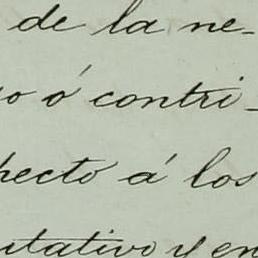 de la ne-
o ó contri-
pecto á los
itativo y en